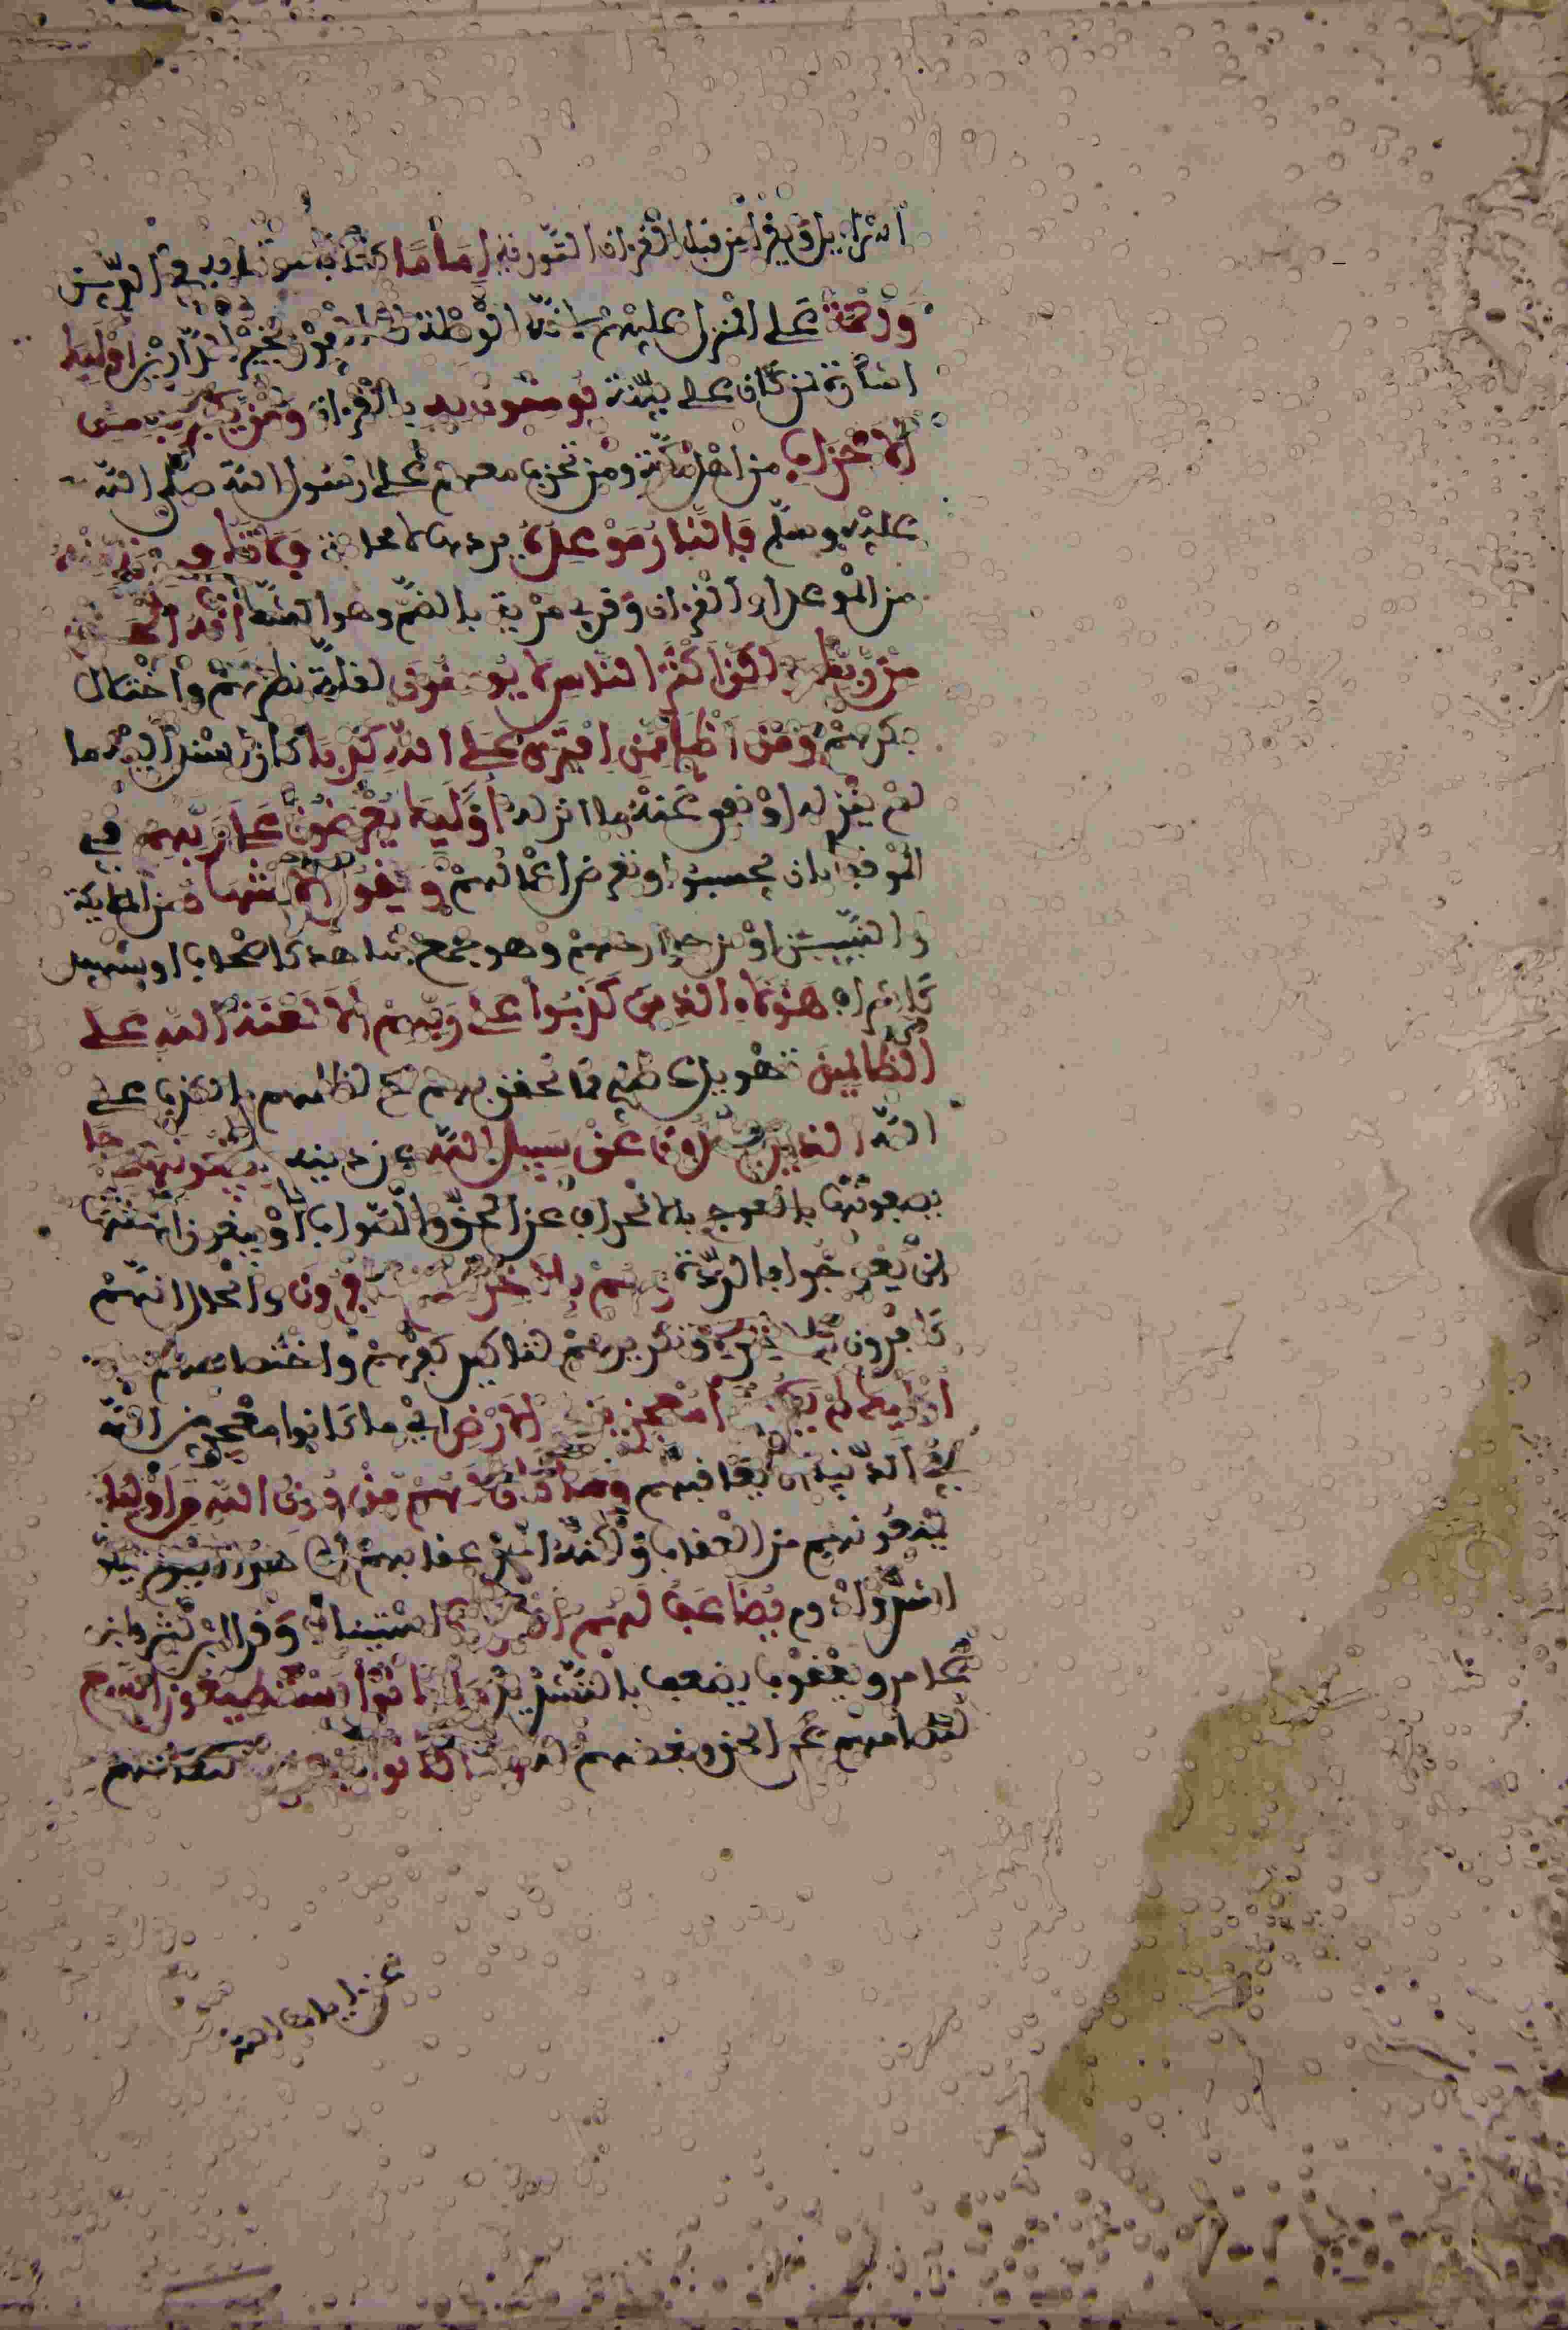 اسراءيل ويقرأ من قبل القرءان التورية إماما كتابا مؤتما به في الدين
ورحمة على المنزل عليهم لأنه الوصلة إلى الفوز بخير الدارين أوليك
إشارة لمن كان على بينة يومنون به بالقرءان ومن يكفر به من
الأحزاب من أهل مكة ومن تحزب معهم على رسول الله صلى الله
عليه وسلم فالنار موعده يردها لا محالة فلا تك في مرية منه
من الموعد أو القرءان وقرئ مرية بالضم وهو الشك إنه الحق
من ربك ولكن أكثر الناس لا يومنون لقلة نظرهم واختلال
فكرهم ومن أظلم ممن افترى على الله كذبا كأن أسند إليه ما
لم ينزله أو نفى عنه ما انزله أوليك يعرضون على ربهم في
الموقف بأن يحبسوا وتعرض أعمالهم ويقول الأشهاد من الملايكة
والنبيين أو من جوارحهم وهو جمع شاهد كأصحاب أو شهيد
كأشراف هؤلاء الذين كذبوا على ربهم ألا لعنة الله على
الظالمين تهويل عظيم مما يحيق بهم ح لظلمهم بالكذب على
الله الذين يصدون عن سبيل الله عن دينه ويبغونها عوجا
يصفونها بالعوج بالانحراف عن الحق والصواب أو يبغون أهلها
أن يعوجوا بالردة وهم بالآخرة هم كافرون والحال انهم
كافرون بالآخرة وتكريرهم لتاكيد كفرهم واختصاصهم به
أوليك لم يكونوا معجزين في الأرض اي ما كانوا معجزين الله
في الدنيا أن يعاقبهم وما كان لهم من دون الله من أولياء
يمنعونهم من العقاب ولكنه أخر عقابهم إلى هذا اليوم ليكون
اشد وادوم يضاعف لهم العذاب استيناف وقرا ابن كثير وابن
عامر ويعقوب يضعف بالتشديد ما كانوا يستطيعون السمع
لتصامهم عن الحق وبغضهم له وما كانوا يبصرون لتعاميهم